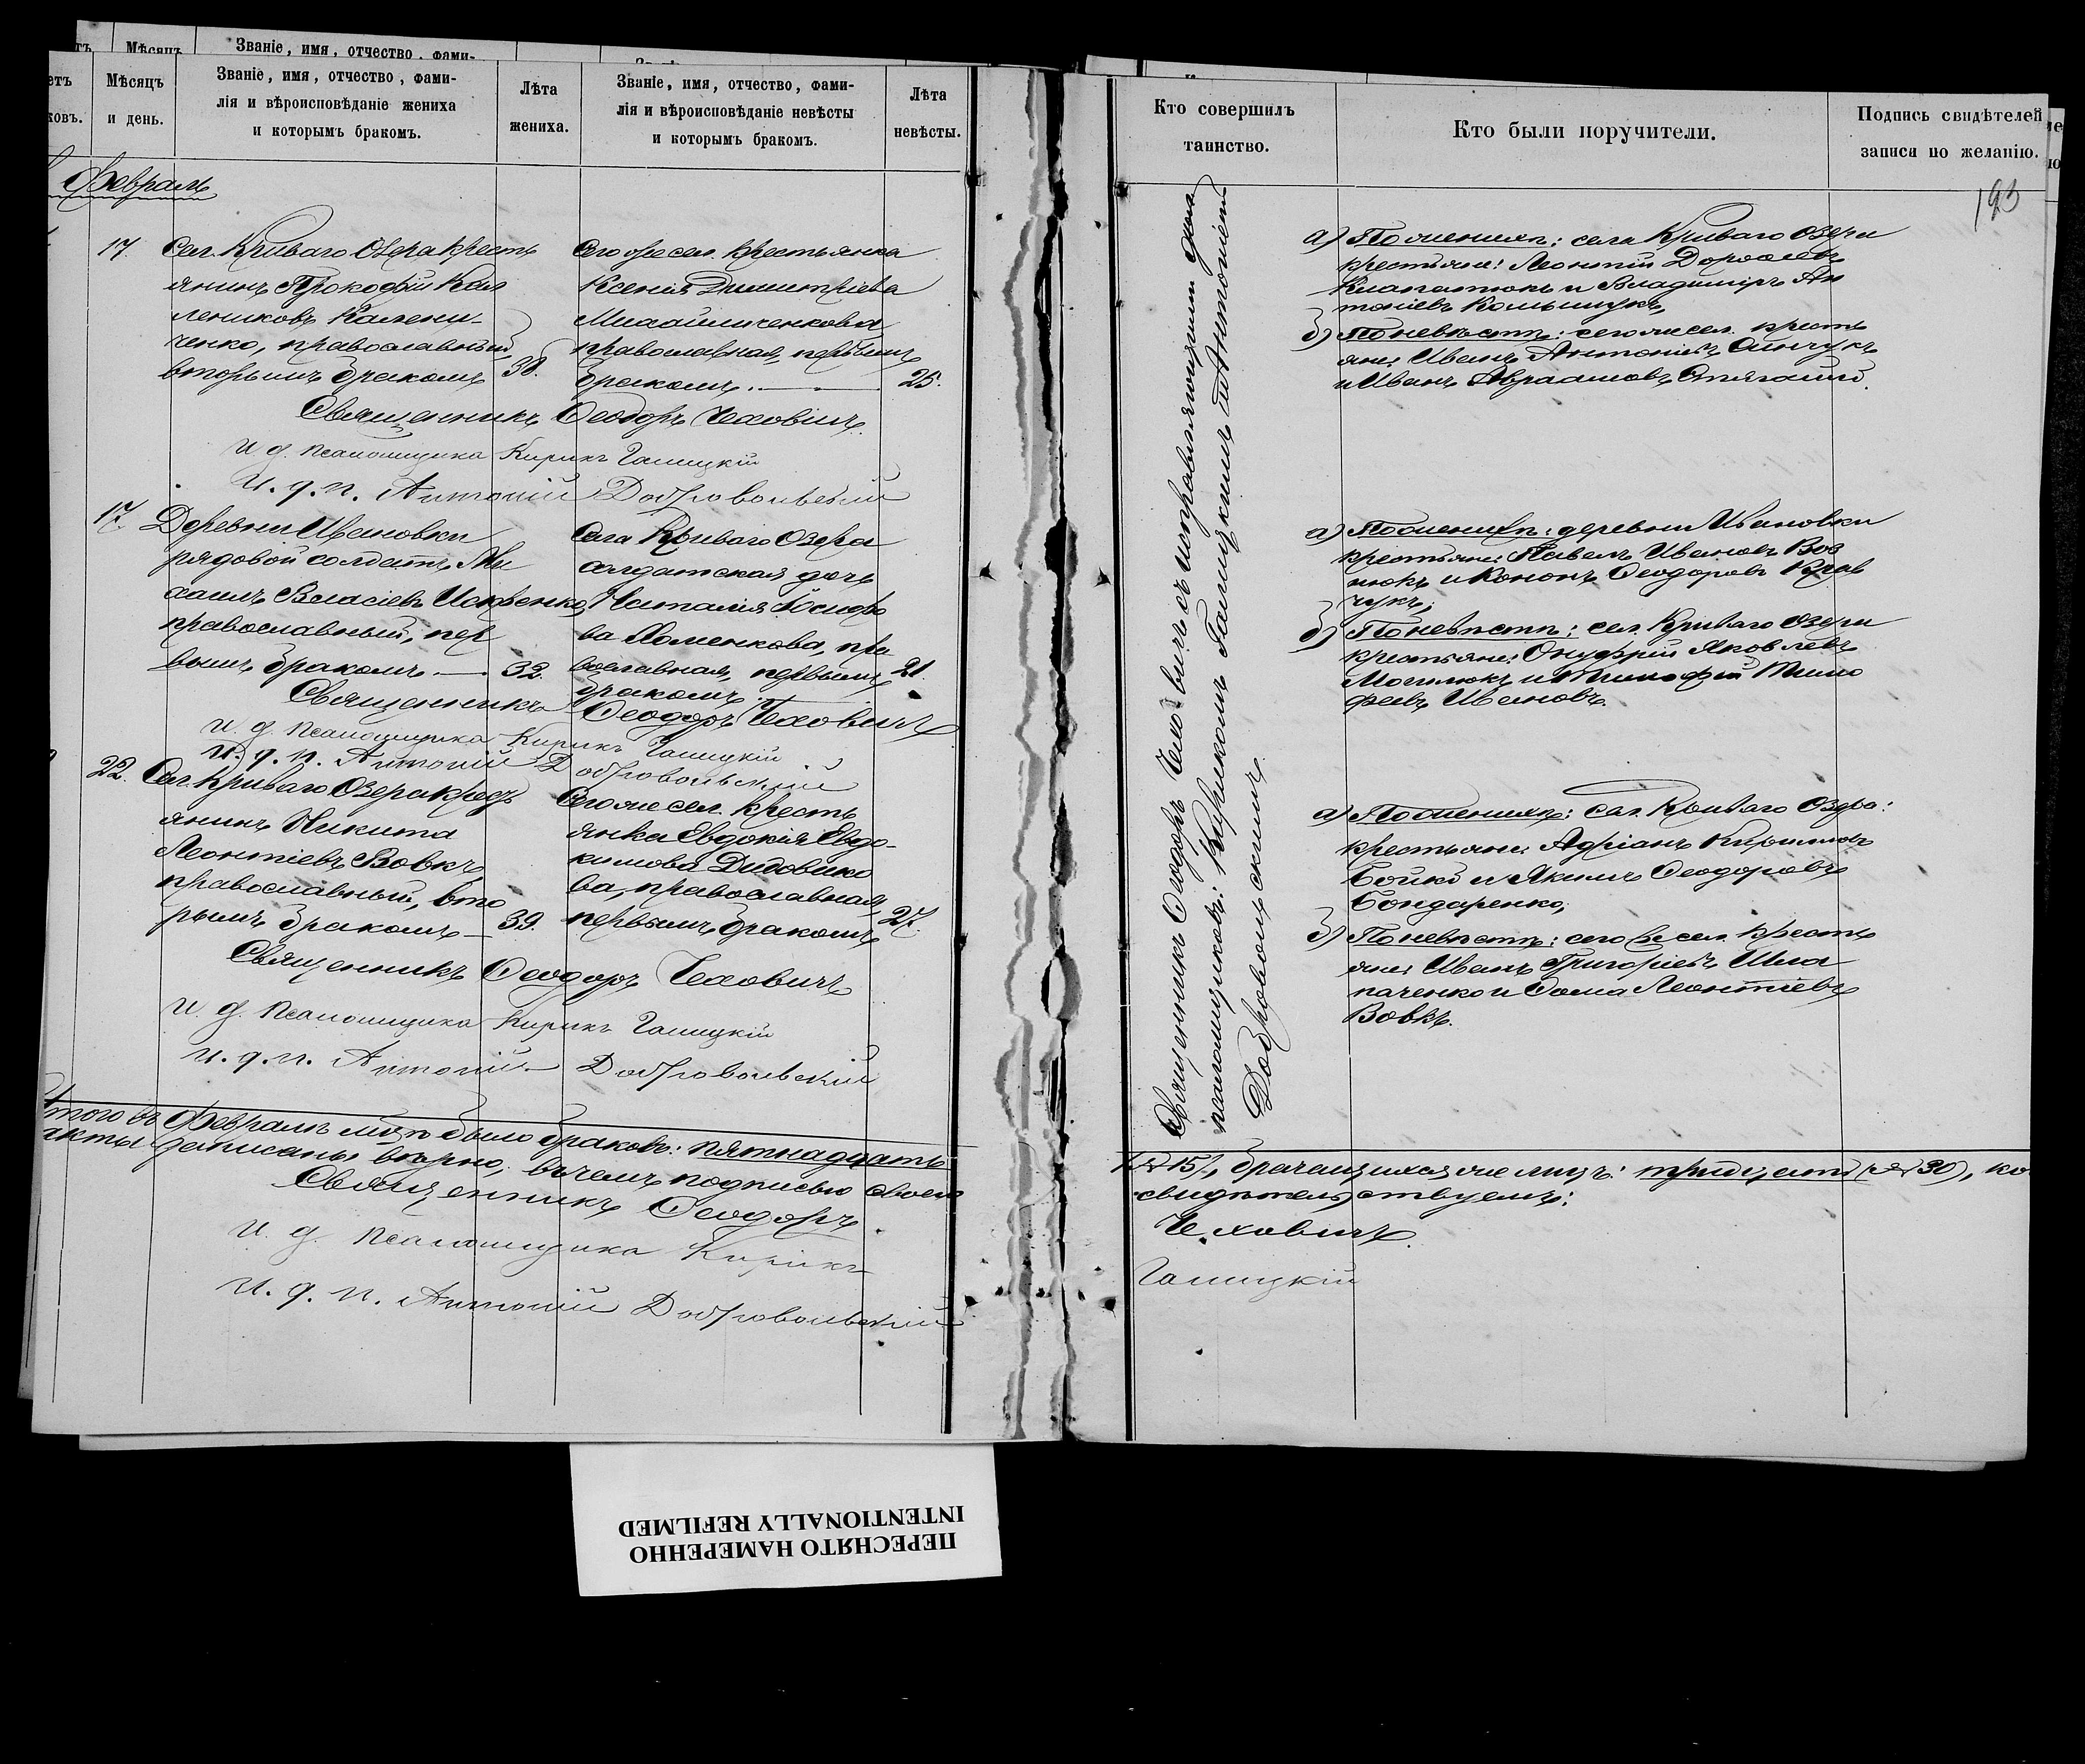 Мѣсяцъ
Званіе, имя, отчество, фами-
етъ
ковъ.
Мѣсяцъ
и день.
Званіе, имя, отчество, фами-
лія и вѣроисповѣданіе жениха
и которымъ бракомъ.
Лѣта
жениха.
Званіе, имя, отчество, фами-
лія и вѣроисповѣданіе невѣсты
и которымъ бракомъ.
Лѣта
невѣсты.
Февраль
17.
Сел. Криваго Озера кресть
янинъ Прокофій Кал
лениковъ Калени-
ченко, православный,
вторымъ бракомъ
38.
Сего же сел. крестьянка
Ксенія Димитріева
Михайличенкова
православная, первымъ
бракомъ.
25.
Священникъ Ѳеодоръ Чеховичъ.
И. д. псаломщика Кирикъ Галицкій
И. д. п. Антоній Добровольскій
17.
Деревни Ивановки
рядовой солдатъ Ми
хаилъ Власіевъ
православный, пер
вымъ бракомъ
32.
Села Криваго Озера
солдатская дочь
Наталія Іосифо
ва Хоменкова, пра
вославная, первымъ
бракомъ.
21.
Священникъ Ѳеодоръ Чеховичъ
И. д. псаломщика Кирикъ Галицкій
И. д. п. Антоній Добровольскій
22.
Сел. Криваго Озера крест
янинъ Никита
Леонтіевъ Вовкъ,
православный, вто
рымъ бракомъ
39.
Сего же сел. кресть
янка Евдокія Евдо-
кимова Дидовико
ва, православная,
первымъ бракомъ
27.
Священникъ Ѳеодоръ Чеховичъ
И. д. псаломщика Кирикъ Галицкій
И. д. п. Антоній Добровольскій
Итого въ Февралѣ м-цѣ было браковъ: пятнадцать
акты записаны вѣрно, въ чемъ подписью своею
Священникъ Ѳеодоръ
И. д. псаломщика Кирикъ
И. д. п. Антоній Добровольскій
Кто совершилъ
таинство.
Кто были поручители.
Подпись свидѣтелей
записи по желанію.
193
Священникъ Ѳеодоръ Чеховичъ съ исправляющими долж.
псаломщиковъ: Кирикомъ Галицкимъ и Антоніемъ
Добровольскимъ.
а) По женихѣ: села Криваго Озера
крестьяне: Леонтій Дороѳеевъ
и Владиміръ Ан
тоніевъ
б) По невѣстѣ: сего же сел. кресть
яне: Иванъ Антоніевъ
и Иванъ Авраамовъ
а) По женихѣ: деревни Ивановки
крестьяне: Павелъ Ивановъ Воз
нюкъ и Кононъ Ѳеодоровъ Крав
чукъ;
б) По невѣстѣ: сел. Криваго Озера
крестьяне: Онуфрій Яковлевъ
и Тимофей Тимо
феевъ Ивановъ.
а) По женихѣ: сел. Криваго Озера:
крестьяне: Адріанъ Кирилловъ
Бойко и Якимъ Ѳеодоровъ
Бондаренко,
б) По невѣстѣ: сего же сел. кресть
яне: Иванъ Григоріевъ Шла
паченко и Ѳома Леонтіевъ
Вовкъ.
(№ 15), брачащихся же лицъ: тридцать (№ 30), ко
свидѣтельствуемъ:
Чеховичъ.
Галицкій
ПЕРЕСНЯТО НАМЕРЕННО
INTENTIONALLY REFILMED